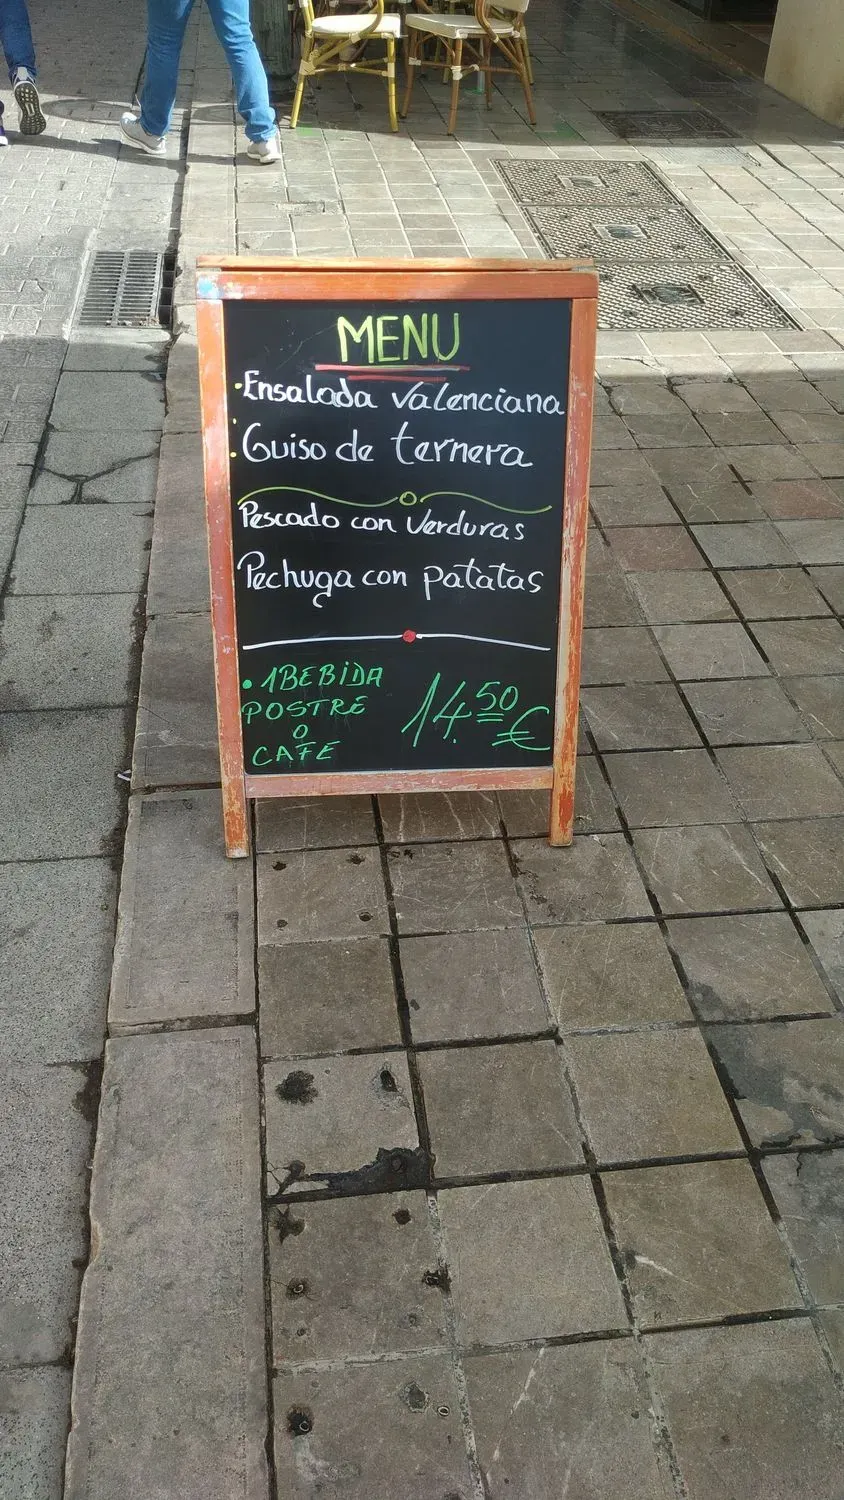 MENU
· Ensalada valenciana
: Guiso de ternera
Pescado con verduras
Pechuga con patatas
• 1 BEBiDA
POSTRE
O
CAFE
14.50 €